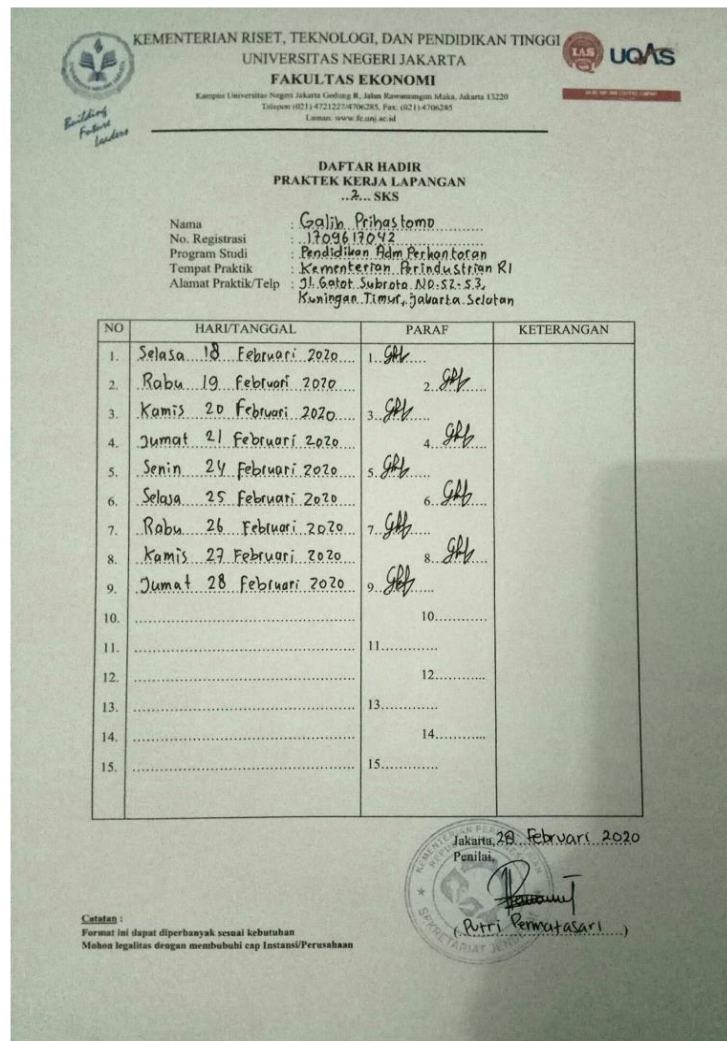 KEMENTERIAN RISET, TEKNOLOGI, DAN PENDIDIKAN TINGGI
UNIVERSITAS NEGERI JAKARTA
FAKULTAS EKONOMI
Kampus Universitas Negeri Jakarta Gedung R, Jalan Rawamangun Muka, Jakarta 13220
Telepon (021) 4721227/4706285, Fax: (021) 4706285
Laman: www.fe.unj.ac.id
Building
Future
leaders
IAS
UQAS
DAFTAR HADIR
PRAKTEK KERJA LAPANGAN
..2... SKS
Nama : Galih Prihastomo
No. Registrasi : 1709617042
Program Studi : Pendidikan Adm Perkantoran
Tempat Praktik : Kementerian Perindustrian RI
Alamat Praktik/Telp : Jl. Gatot Subroto NO. 52-53,
Kuningan Timur, Jakarta Selatan
NO HARI/TANGGAL PARAF KETERANGAN
1. Selasa 18 Februari 2020 1.
2. Rabu 19 Februari 2020 2.
3. Kamis 20 Februari 2020 3.
4. Jumat 21 Februari 2020 4.
5. Senin 24 Februari 2020 5.
6. Selasa 25 Februari 2020 6.
7. Rabu 26 Februari 2020 7.
8. Kamis 27 Februari 2020 8.
9. Jumat 28 Februari 2020 9.
10. 10.
11. 11.
12. 12.
13. 13.
14. 14.
15. 15.
Jakarta, 28 Februari 2020
Penilai,
(Putri Permatasari)
KEMENTERIAN
SEKRETARIAT JENDERAL
Catatan :
Format ini dapat diperbanyak sesuai kebutuhan
Mohon legalitas dengan membubuhi cap Instansi/Perusahaan